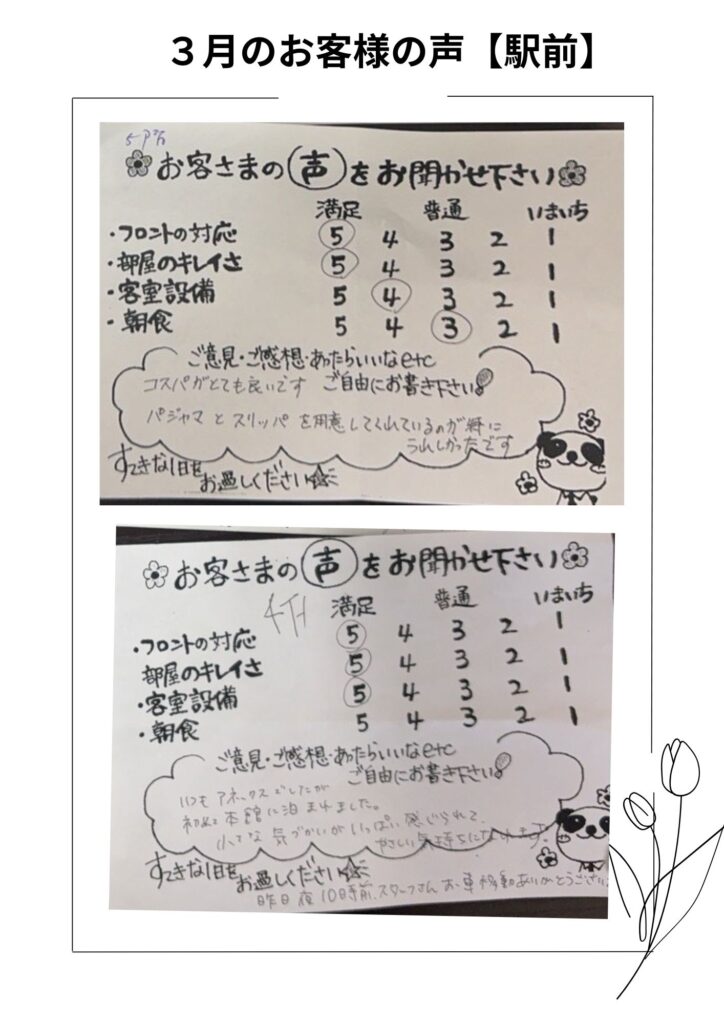 ３月のお客様の声【駅前】
お客さまの声をお聞かせ下さい
満足 普通 いまいち
・フロントの対応 5 4 3 2 1
・部屋のキレイさ 5 4 3 2 1
・客室設備 5 4 3 2 1
・朝食 5 4 3 2 1
ご意見・ご感想・あったらいいなetc
コスパがとても良いです ご自由にお書き下さい
パジャマとスリッパを用意してくれているのが特に
うれしかったです
すてきな1日を
お過しください☆
お客さまの声をお聞かせ下さい
満足 普通 いまいち
・フロントの対応 5 4 3 2 1
部屋のキレイさ 5 4 3 2 1
・客室設備 5 4 3 2 1
・朝食 5 4 3 2 1
ご意見・ご感想・あったらいいなetc
ご自由にお書き下さい
いつもアネックスでしたが
初めて本館に泊まれました。
小さな気づかいがいっぱい感じられて、
やさしい気持ちになれます。
すてきな1日を
お過しください☆
昨日夜10時前、スタッフさんお車移動ありがとうござい